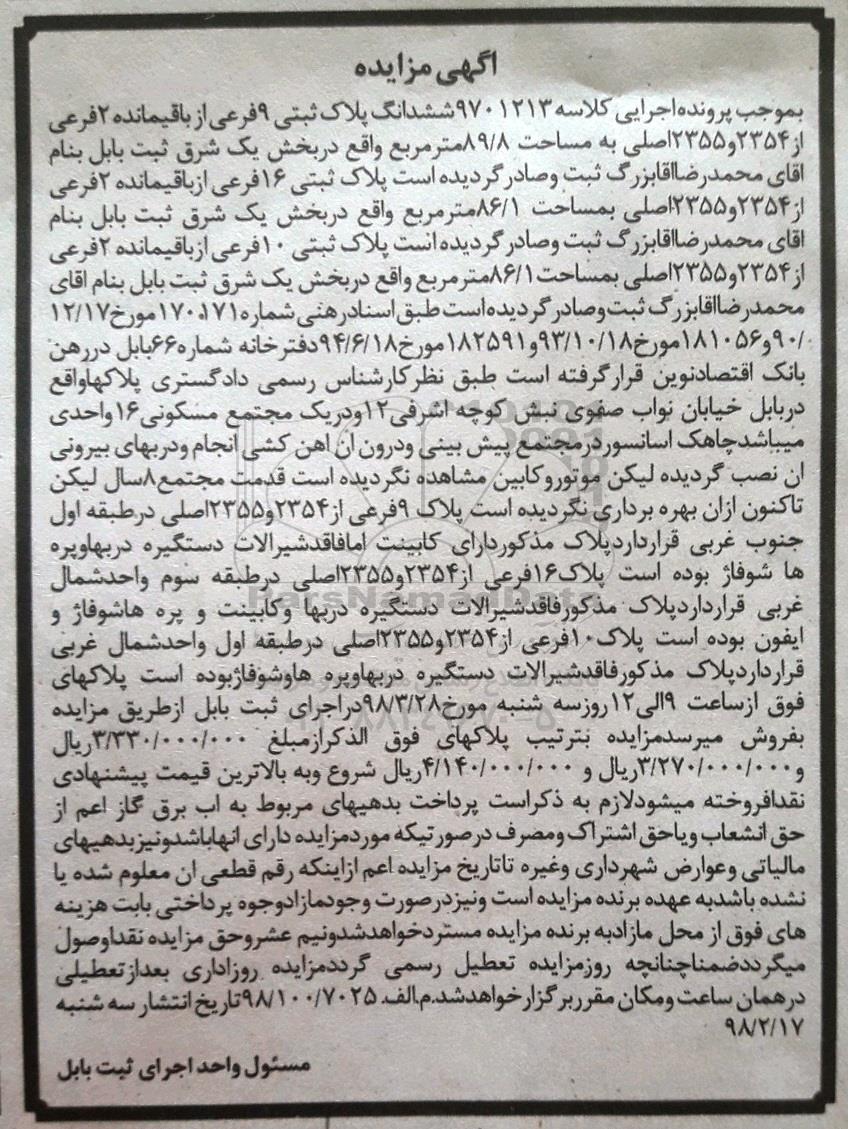 اگهی مزایده
بموجب پرونده اجرایی کلاسه ۹۷۰۱۲۱۳ ششدانگ پلاک ثبتی ۹فرعی از باقیمانده ۲فرعی
از۲۳۵۴و۲۳۵۵اصلی به مساحت ۸۹/۸مترمربع واقع دربخش یک شرق ثبت بابل بنام
اقای محمدرضااقابزرگ ثبت وصادرگردیده است پلاک ثبتی ۱۶فرعی ازباقیمانده ۲فرعی
از۲۳۵۴و۲۳۵۵اصلی بمساحت ۸۶/۱مترمربع واقع دربخش یک شرق ثبت بابل بنام
اقای محمدرضااقابزرگ ثبت وصادرگردیده است پلاک ثبتی ۱۰فرعی ازباقیمانده ۲فرعی
از۲۳۵۴و۲۳۵۵اصلی بمساحت۸۶/۱مترمربع واقع دربخش یک شرق ثبت بابل بنام اقای
محمدرضااقابزرگ ثبت وصادرگردیده است طبق اسنادرهنی شماره ۱۷۰،۱۷۱مورخ۱۲/۱۷
/۹۰و۱۸۱۰۵۶مورخ۹۳/۱۰/۱۸و۱۸۲۵۹۱مورخ۹۴/۶/۱۸دفترخانه شماره۶۶بابل دررهن
بانک اقتصادنوین قرارگرفته است طبق نظرکارشناس رسمی دادگستری پلاکهاواقع
دربابل خیابان نواب صفوی نبش کوچه اشرفی۱۲ودریک مجتمع مسکونی۱۶واحدی
میباشدچاهک اسانسوردرمجتمع پیش بینی ودرون ان اهن کشی انجام ودربهای بیرونی
ان نصب گردیده لیکن موتوروکابین مشاهده نگردیده است قدمت مجتمع۸سال لیکن
تاکنون ازان بهره برداری نگردیده است پلاک ۹فرعی از۲۳۵۴و۲۳۵۵اصلی درطبقه اول
جنوب غربی قرارداردپلاک مذکوردارای کابینت امافاقدشیرالات دستگیره دربهاوپره
ها شوفاژ بوده است پلاک۱۶فرعی از۲۳۵۴و۲۳۵۵اصلی درطبقه سوم واحدشمال
غربی قرارداردپلاک مذکورفاقدشیرالات دستگیره دربها وکابینت و پره هاشوفاژ و
ایفون بوده است پلاک۱۰فرعی از۲۳۵۴و۲۳۵۵اصلی درطبقه اول واحدشمال غربی
قرارداردپلاک مذکورفاقدشیرالات دستگیره دربهاوپره هاوشوفاژبوده است پلاکهای
فوق ازساعت ۹الی۱۲روزسه شنبه مورخ۹۸/۳/۲۸دراجرای ثبت بابل ازطریق مزایده
بفروش میرسدمزایده بترتیب پلاکهای فوق الذکرازمبلغ ۳/۳۳۰/۰۰۰/۰۰۰ریال
و۳/۲۷۰/۰۰۰/۰۰۰ریال و ۴/۱۴۰/۰۰۰/۰۰۰ریال شروع وبه بالاترین قیمت پیشنهادی
نقدافروخته میشودلازم به ذکراست پرداخت بدهیهای مربوط به اب برق گاز اعم از
حق انشعاب ویاحق اشتراک ومصرف درصورتیکه موردمزایده دارای انهاباشدونیزبدهیهای
مالیاتی وعوارض شهرداری وغیره تاتاریخ مزایده اعم ازاینکه رقم قطعی ان معلوم شده یا
نشده باشدبه عهده برنده مزایده است ونیزدرصورت وجودمازادوجوه پرداختی بابت هزینه
های فوق از محل مازادبه برنده مزایده مستردخواهدشدونیم عشروحق مزایده نقداوصول
میگرددضمناچنانچه روزمزایده تعطیل رسمی گرددمزایده روزاداری بعدازتعطیلی
درهمان ساعت ومکان مقرربرگزارخواهدشد.م.الف. ۹۸/۱۰۰/۷۰۲۵تاریخ انتشار سه شنبه
۹۸/۲/۱۷
مسئول واحد اجرای ثبت بابل
ParsNamadData